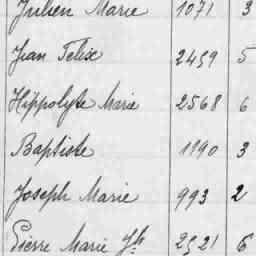 Julien Marie 1071 3
Jean Felix 2459 5
Hippolyte Marie 2568 6
Baptiste 1190 3
Joseph Marie 993 2
Pierre Marie Jh 2521 6